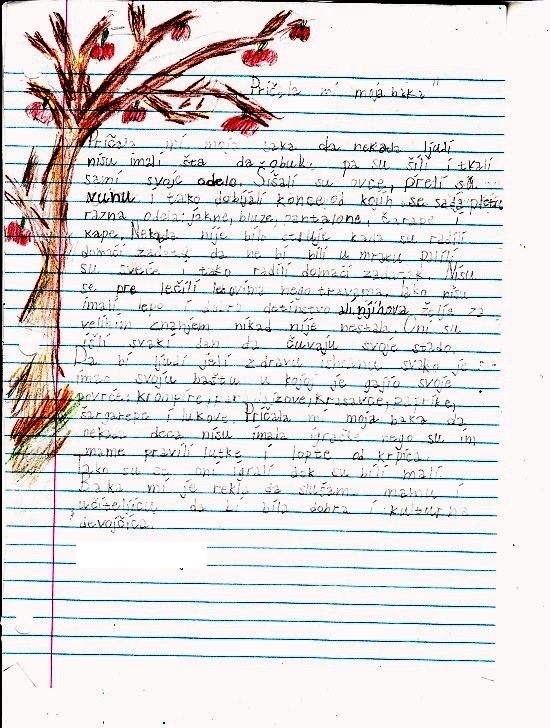 Pričala mi moja baka"
Pričala mi moja baka da nekada ljudi
nisu imali šta da obuku pa su šili i tkali
sami svoje odelo. Šišali su ovce, preli su
vunu i tako dobijali konce od kojih se sada pletu
razna odela: jakne, bluze, pantalone, čarape
kape. Nekada nije bilo struje kada su radili
domaći zadatak da ne bi bili u mraku palili
su sveće i tako radili domaći zadatak. Nisu
se pre lečili lekovima nego travama. Iako nisu
imali lepo i dobro detinstvo ali njihova želja za
velikim znanjem nikad nije nestala. Oni su
išli svaki dan da čuvaju svoje stado.
Da bi ljudi jeli zdravu ishranu svako je
imao svoju baštu u kojoj je gajio svoje
povrće: krompire, paradajzove, krasavce, paprike,
šargarepe i lukove. Pričala mi moja baka da
nekad deca nisu imala igračke nego su im
mame pravili lutke i lopte od krpica.
Tako su se oni igrali dok su bili mali.
Baka mi je rekla da slušam mamu i
učiteljicu da bi bila dobra i kulturna
devojčica.